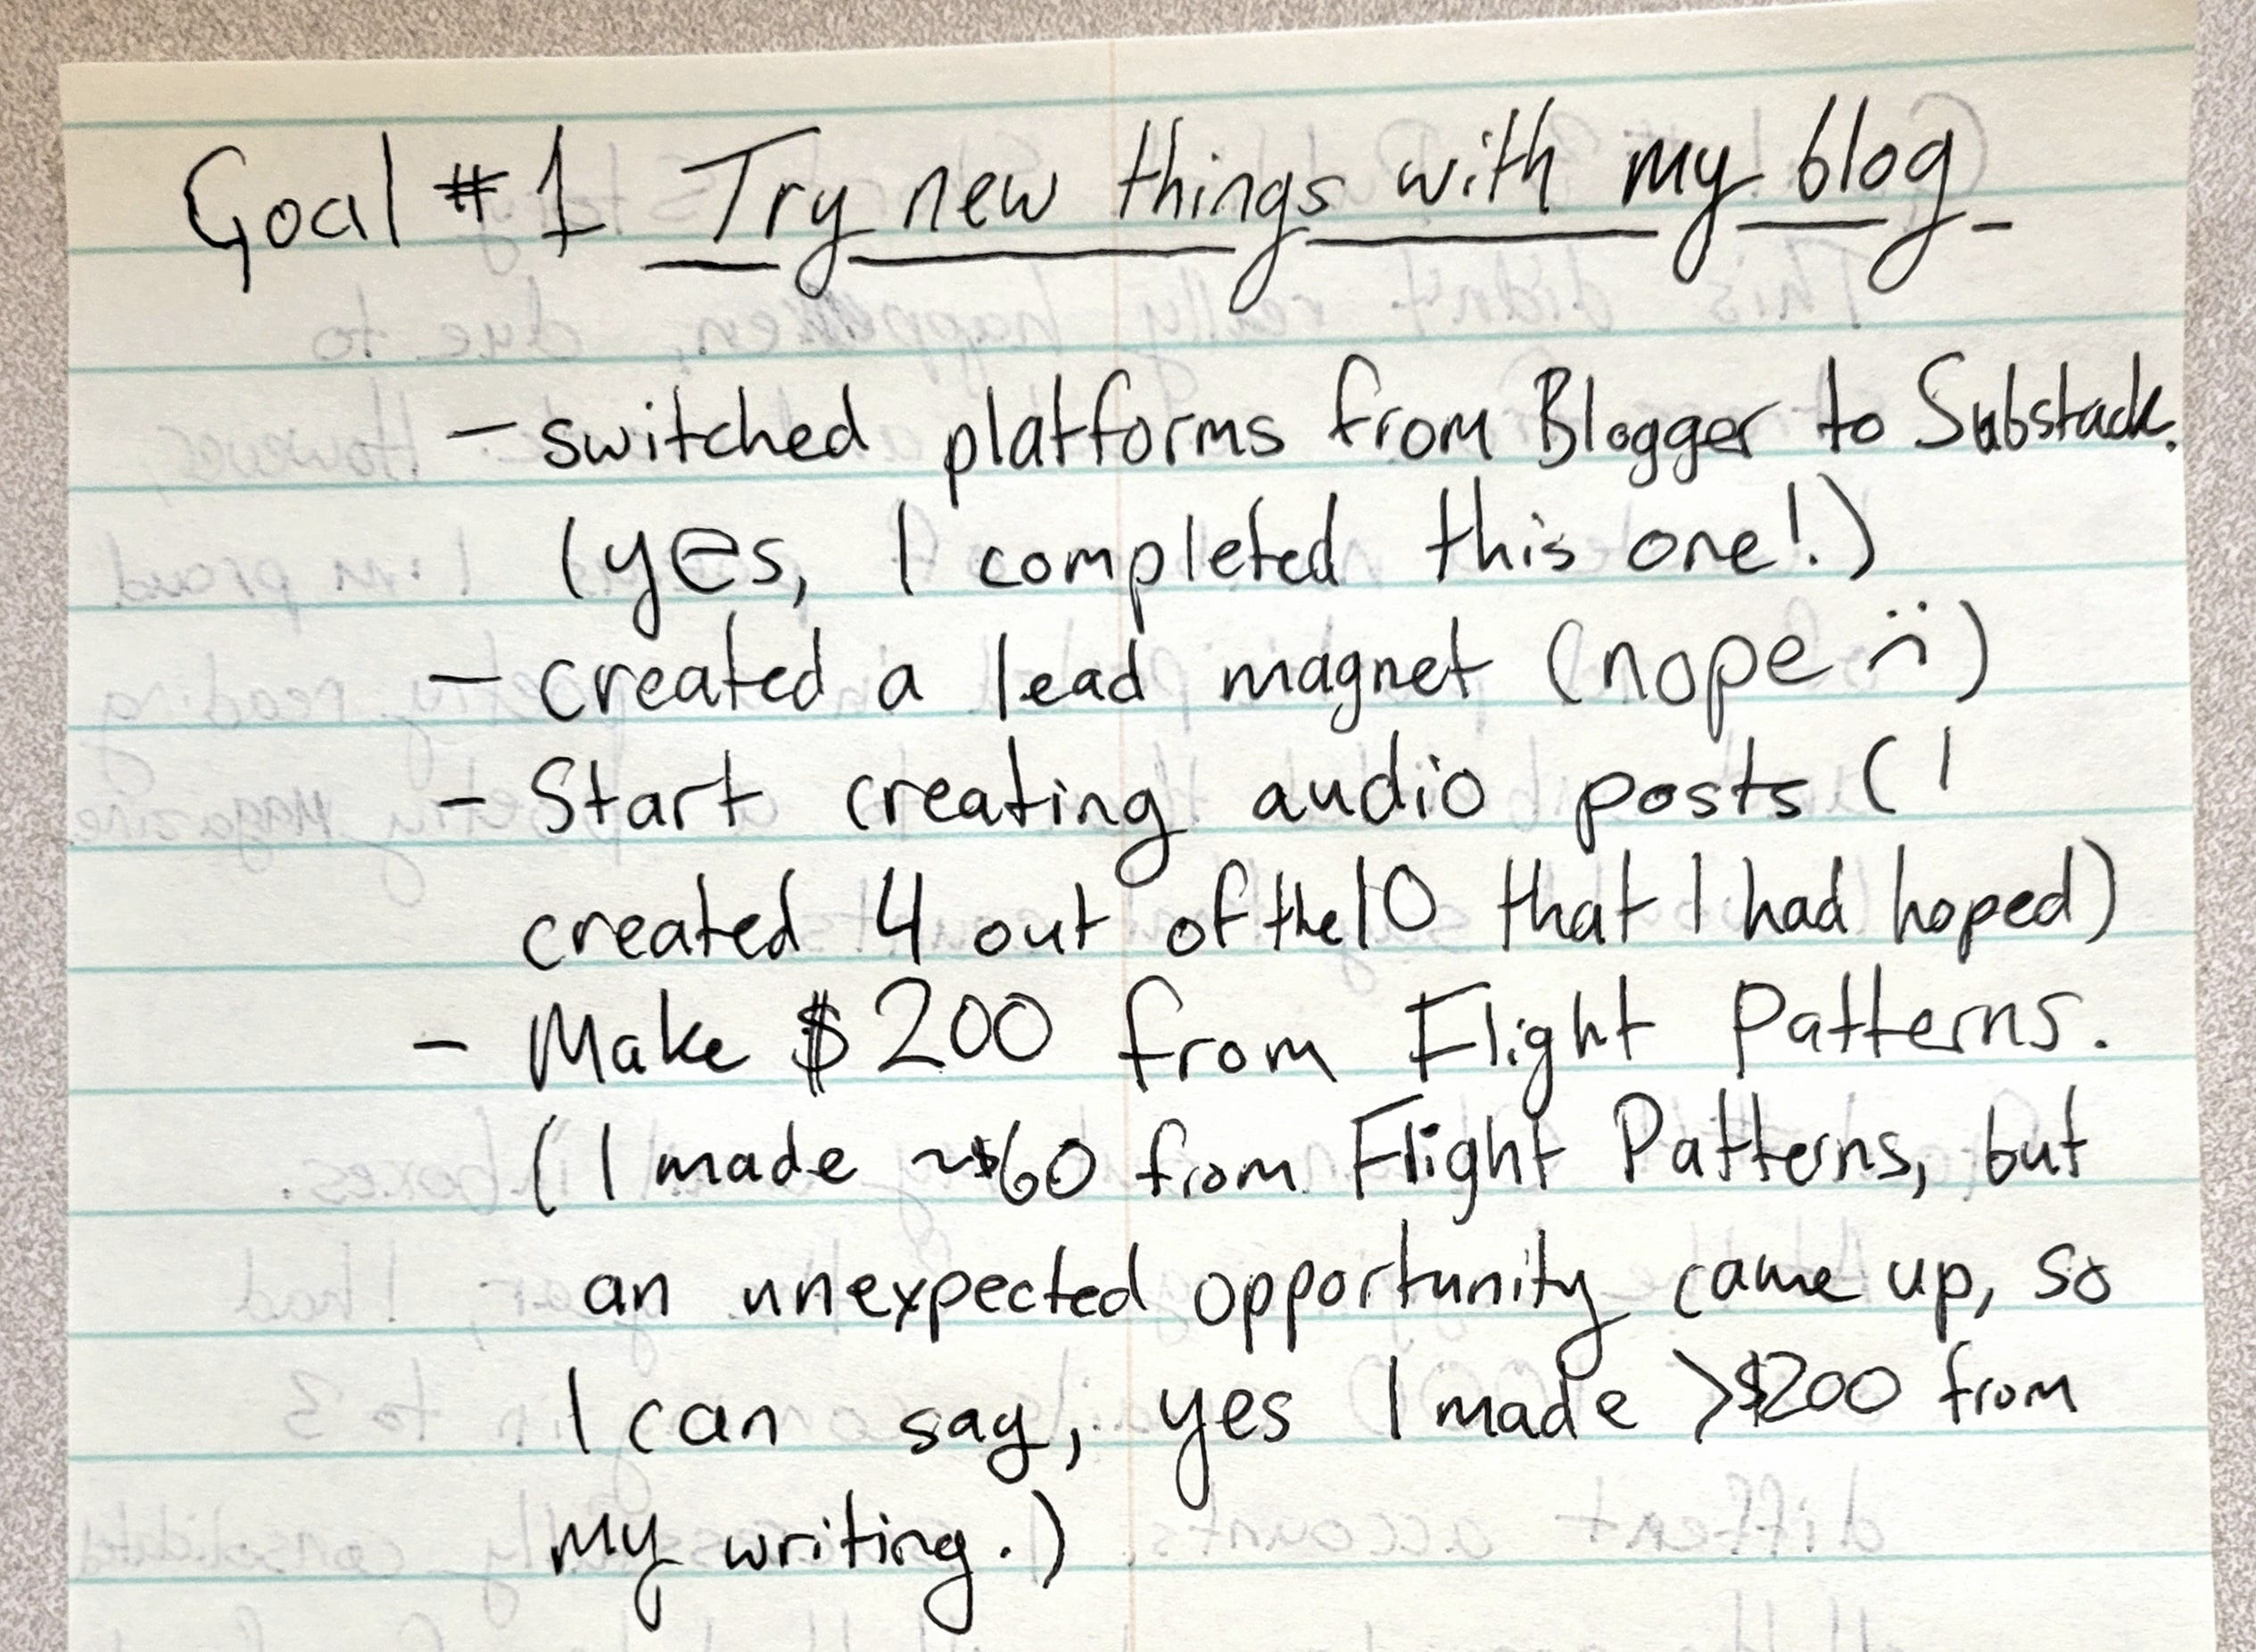 Goal #1 Try new things with my blog
- switched platforms from Blogger to Substack.
(yes, I completed this one!)
- created a lead magnet (nope :()
- Start creating audio posts (I
created 4 out of the 10 that I had hoped)
- Make $200 from Flight Patterns.
(I made ~$60 from Flight Patterns, but
an unexpected opportunity came up, so
I can say, yes I made >$200 from
my writing.)